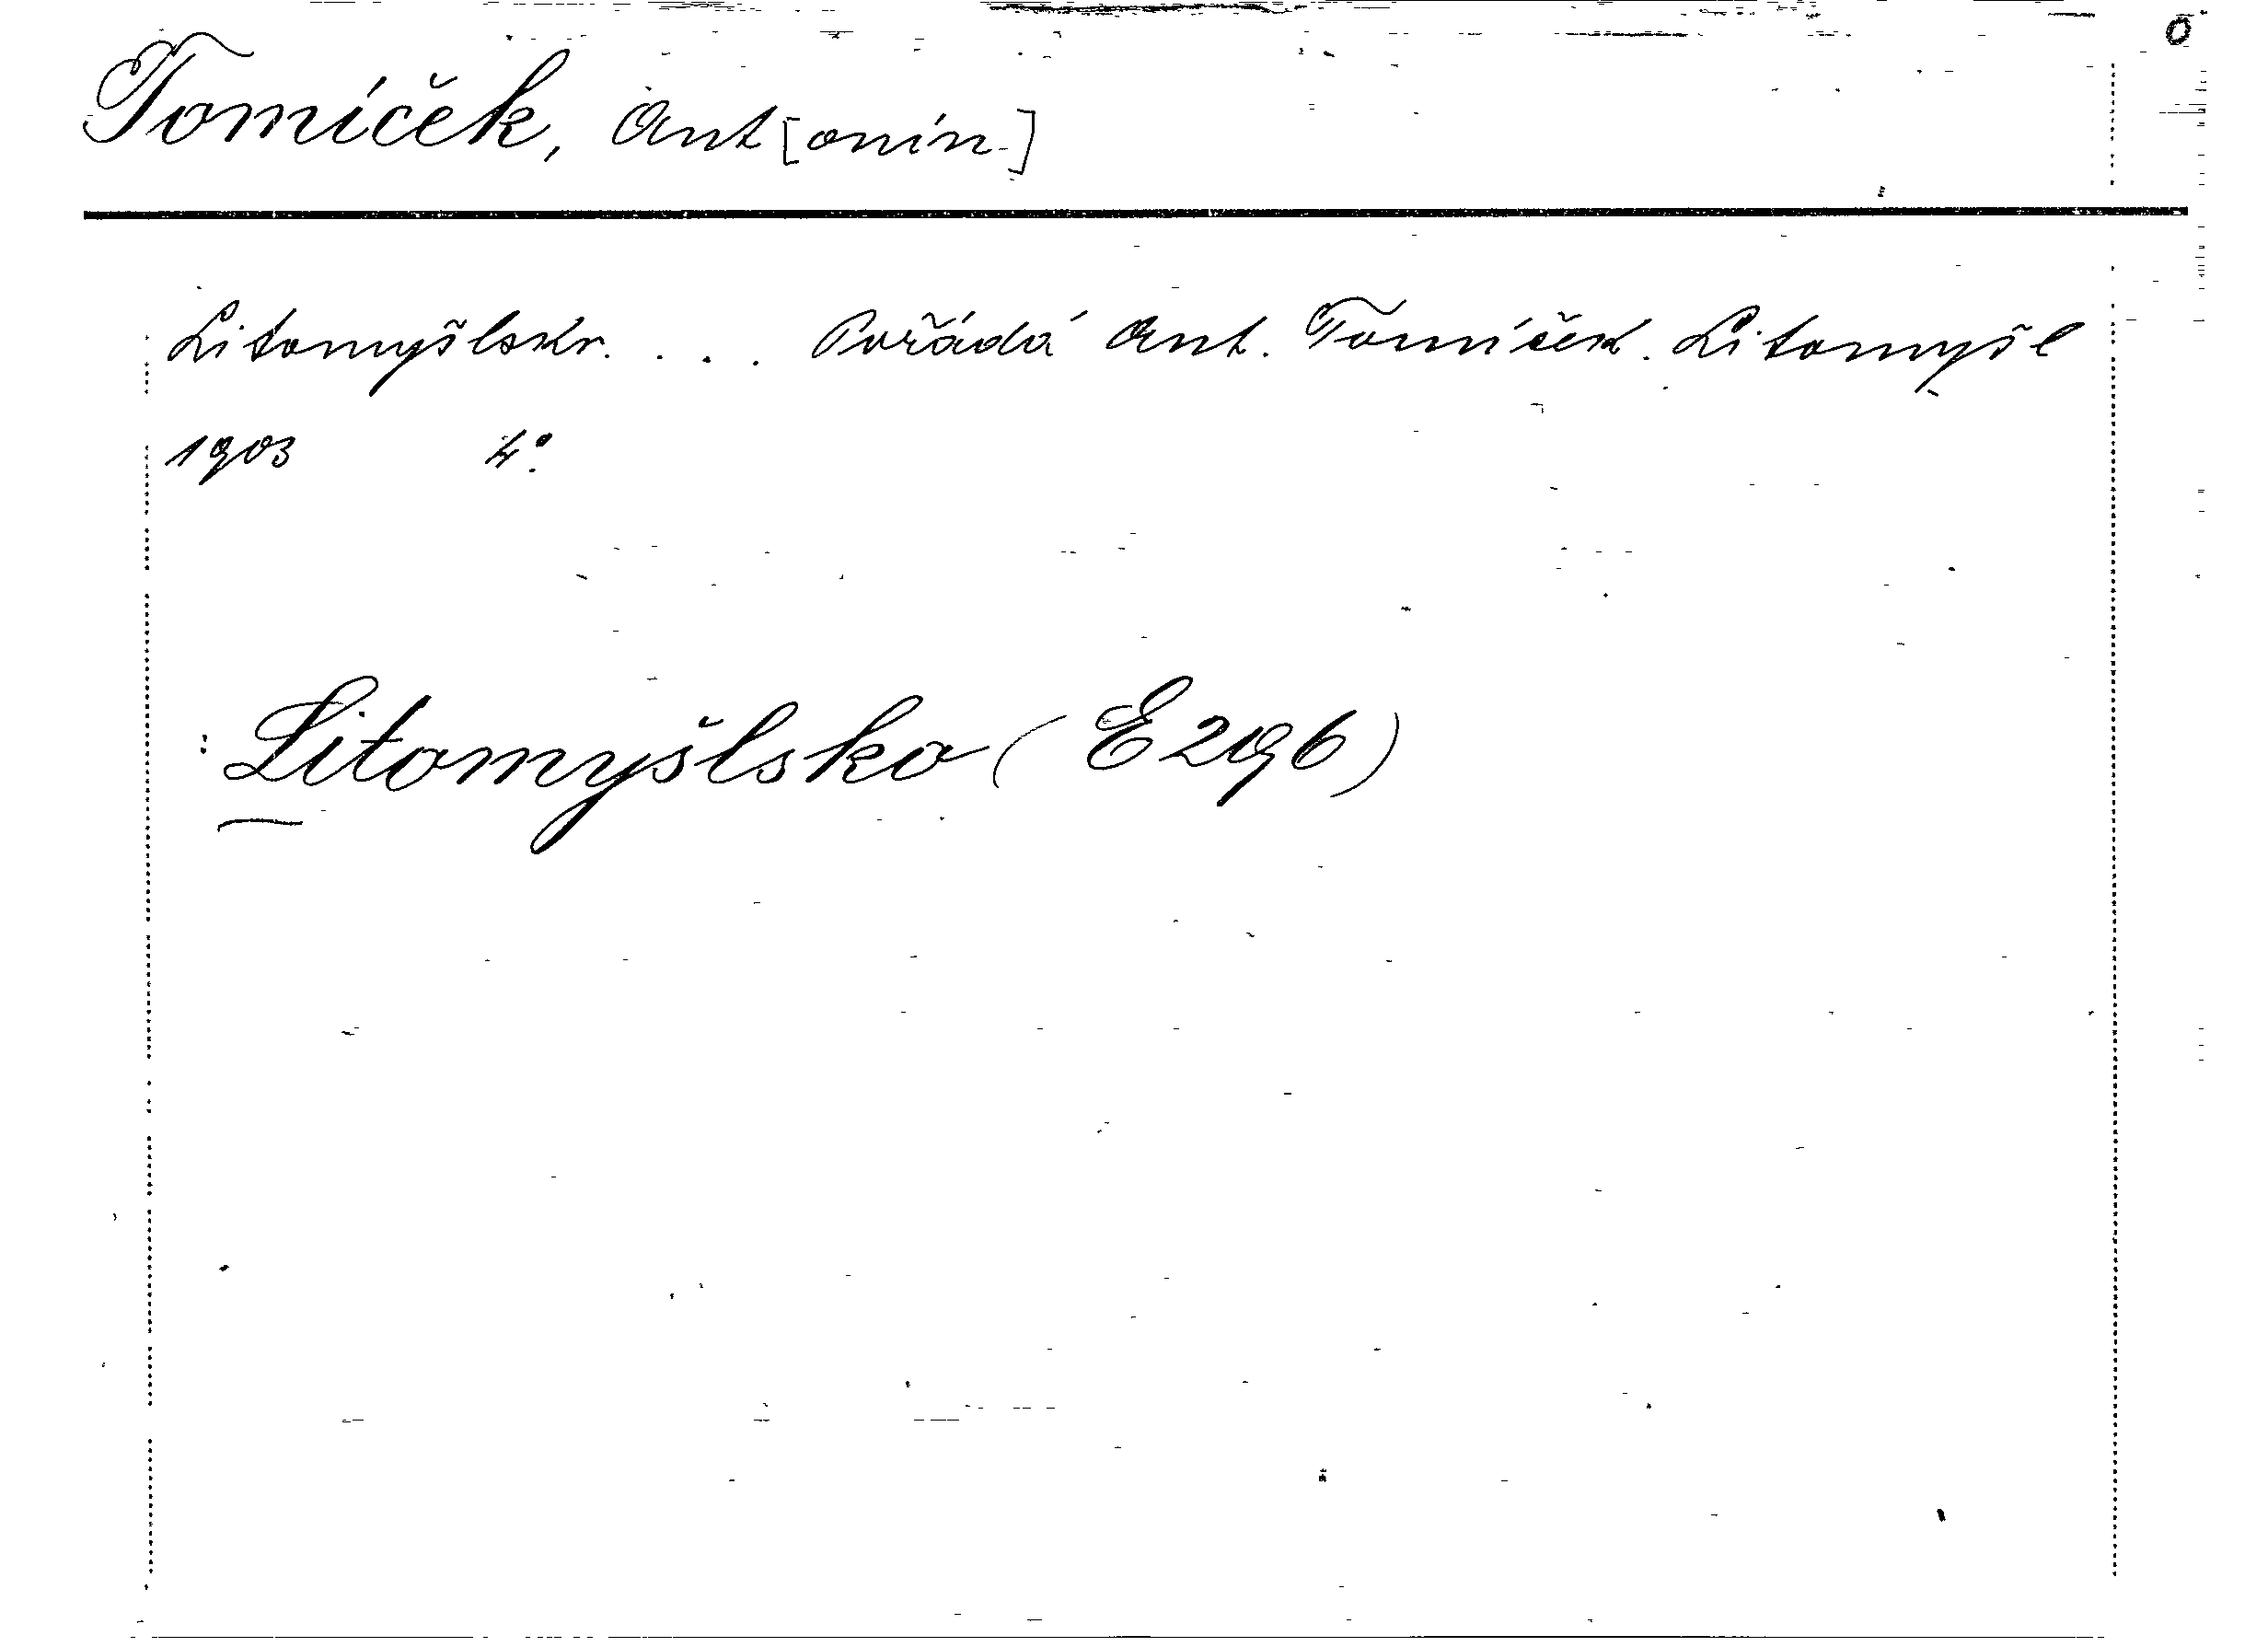 O
Tomíček, Ant[onín]
Litomyšlsko. . . . Pořádá Ant. Tomíček. Litomyšl
1903 4°.
: Litomyšlsko (E 2196)